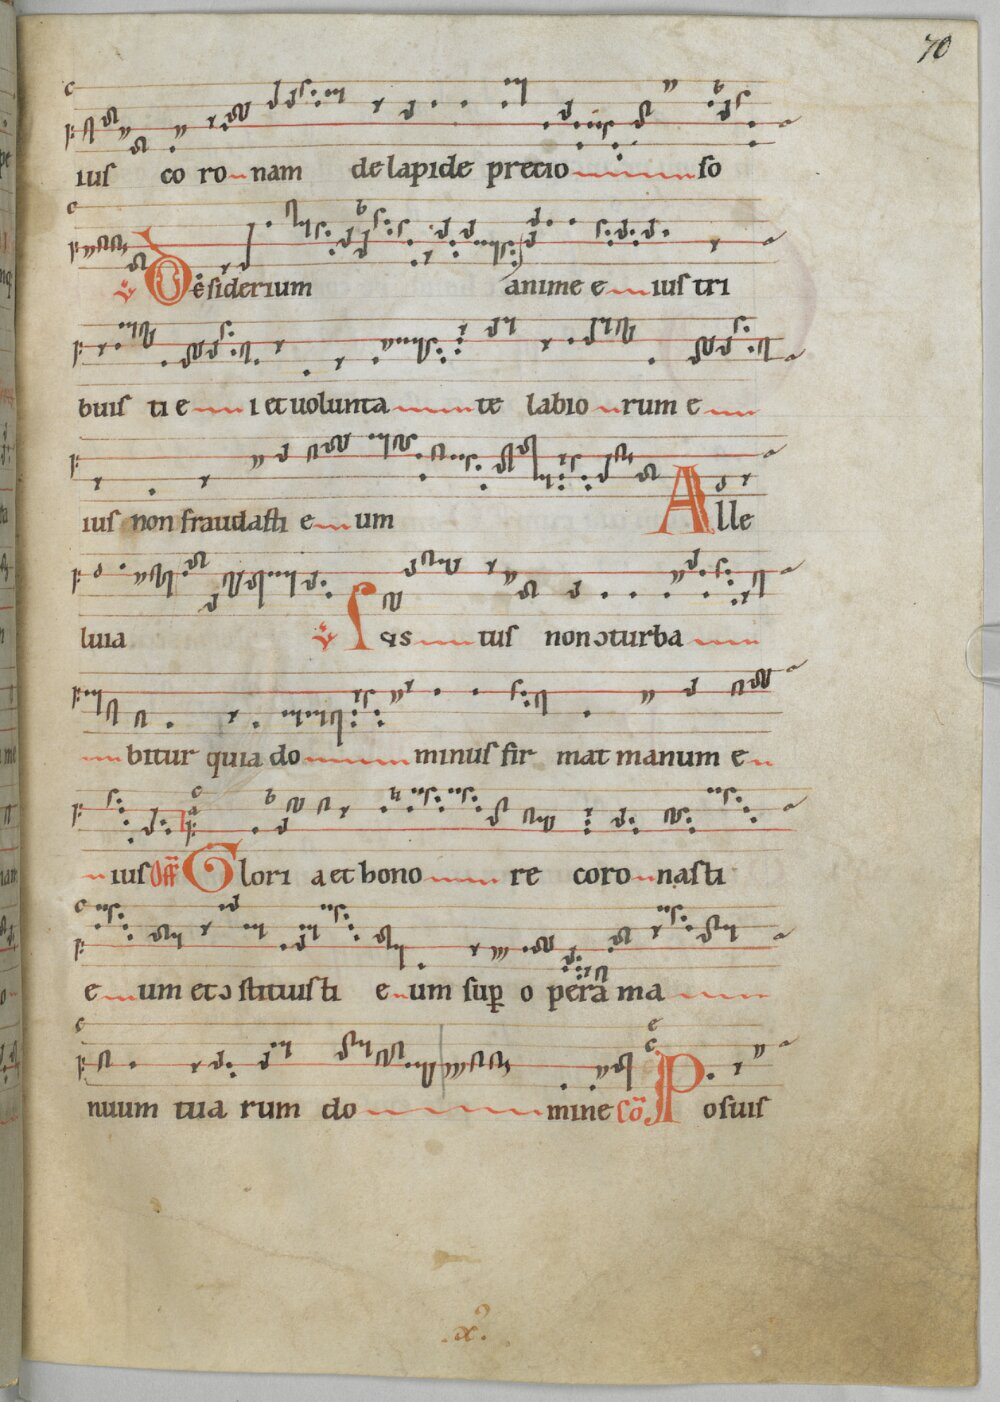 70
ius co ro nam de lapide precio so
℣ Desiderium anime e ius tri
buis ti e i et uolunta te labio rum e
ius non fraudasti e um Alle
luia ℣ Ius tus non ɔturba
bitur quia do minus fir mat manum e
ius Off Glori a et hono re coro nasti
e um et ɔ stituisti e um sup o pera ma
nuum tua rum do mine Cō Posuis
.x.